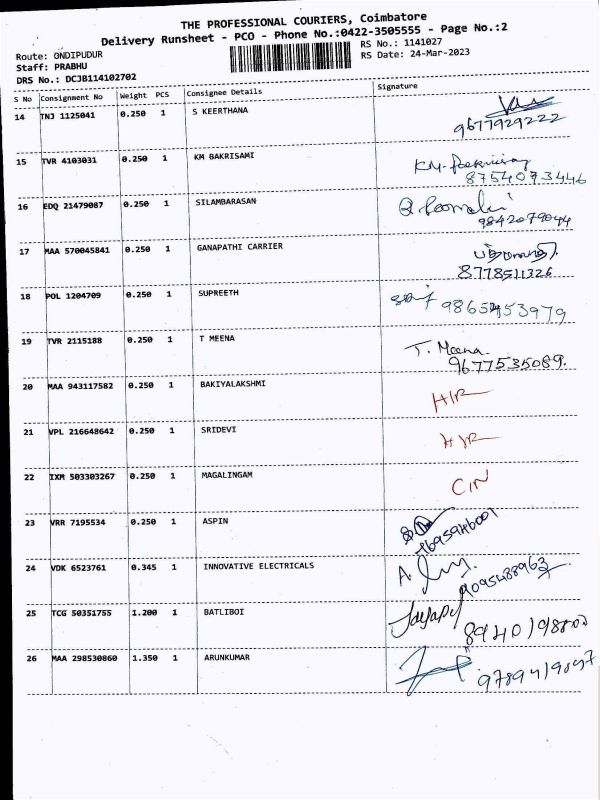 THE PROFESSIONAL COURIERS, Coimbatore
Delivery Runsheet - PCO - Phone No.:0422-3505555 - Page No.:2
Route: ONDIPUDUR
RS No.: 1141027
Staff: PRABHU
RS Date: 24-Mar-2023
DRS No.: DCJB114102702
S No Consignment No Weight PCS Consignee Details Signature
14 TNJ 1125041 0.250 1 S KEERTHANA
9677929222
15 TVR 4103031 0.250 1 KM BAKRISAMI
8754073446
16 EDQ 21479087 0.250 1 SILAMBARASAN
9842079044
17 MAA 570045841 0.250 1 GANAPATHI CARRIER
8778511326
18 POL 1204709 0.250 1 SUPREETH
19 TVR 2115188 0.250 1 T MEENA T. Meena
9677535089.
20 MAA 943117582 0.250 1 BAKIYALAKSHMI
21 VPL 216648642 0.250 1 SRIDEVI
22 IXM 503303267 0.250 1 MAGALINGAM
23 VRR 7195534 0.250 1 ASPIN
24 VDK 6523761 0.345 1 INNOVATIVE ELECTRICALS
9095488963
25 TCG 50351755 1.200 1 BATLIBOI
26 MAA 298530860 1.350 1 ARUNKUMAR